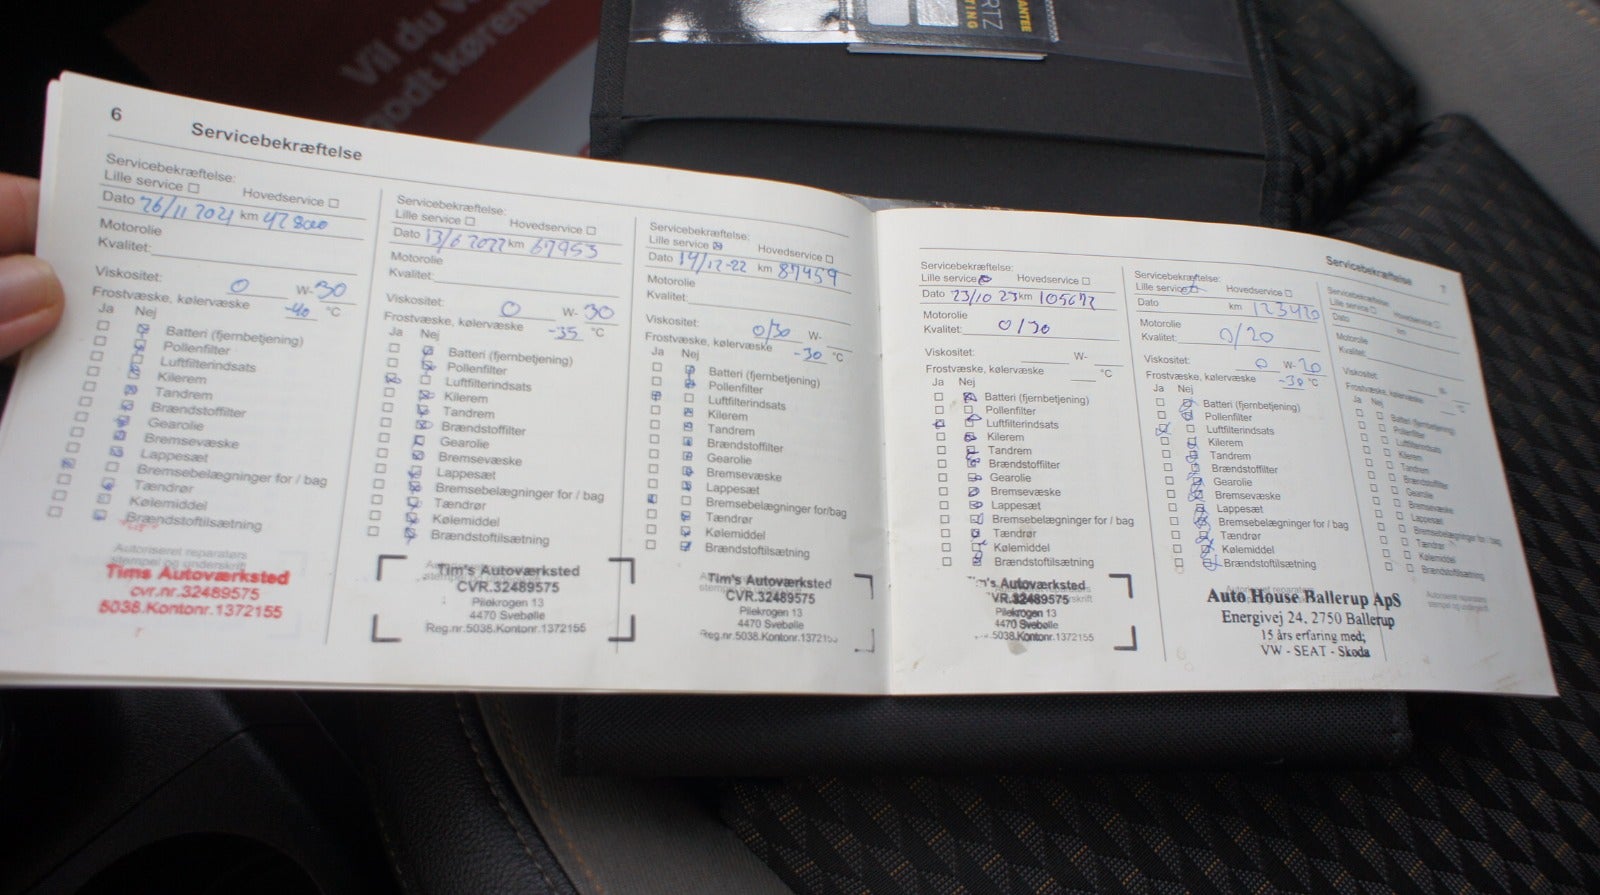 RTZ
TING
ANTEE
Vil du v
godt kørend
6
Servicebekræftelse
Servicebekræftelse:
Lille service Hovedservice
Dato 26/11 2021 km 42800
Motorolie
Kvalitet:
Viskositet: 0 W-30
Frostvæske, kølervæske -40 °C
Ja Nej
Batteri (fjernbetjening)
Pollenfilter
Luftfilterindsats
Kilerem
Tandrem
Brændstoffilter
Gearolie
Bremsevæske
Lappesæt
Bremsebelægninger for / bag
Tændrør
Kølemiddel
Brændstoftilsætning
Autoriseret reparatørs
stempel og underskrift
Tims Autoværksted
cvr.nr.32489575
5038.Kontonr.1372155
Servicebekræftelse:
Lille service Hovedservice
Dato 13/6 2022 km 67953
Motorolie
Kvalitet:
Viskositet: 0 W-30
Frostvæske, kølervæske -35 °C
Ja Nej
Batteri (fjernbetjening)
Pollenfilter
Luftfilterindsats
Kilerem
Tandrem
Brændstoffilter
Gearolie
Bremsevæske
Lappesæt
Bremsebelægninger for / bag
Tændrør
Kølemiddel
Brændstoftilsætning
Tim's Autoværksted
CVR.32489575
Pilekrogen 13
4470 Svebølle
Reg.nr.5038.Kontonr.1372155
Servicebekræftelse:
Lille service Hovedservice
Dato 14/12-22 km 87459
Motorolie
Kvalitet:
Viskositet: 0/30 W-
Frostvæske, kølervæske -30 °C
Ja Nej
Batteri (fjernbetjening)
Pollenfilter
Luftfilterindsats
Kilerem
Tandrem
Brændstoffilter
Gearolie
Bremsevæske
Lappesæt
Bremsebelægninger for/bag
Tændrør
Kølemiddel
Brændstoftilsætning
Tim's Autoværksted
CVR.32489575
Pilekrogen 13
4470 Svebølle
Reg.nr.5038.Kontonr.1372155
Servicebekræftelse 7
Servicebekræftelse:
Lille service Hovedservice
Dato 23/10 23 km 105672
Motorolie
Kvalitet: 0/30
Viskositet: W-
Frostvæske, kølervæske °C
Ja Nej
Batteri (fjernbetjening)
Pollenfilter
Luftfilterindsats
Kilerem
Tandrem
Brændstoffilter
Gearolie
Bremsevæske
Lappesæt
Bremsebelægninger for / bag
Tændrør
Kølemiddel
Brændstoftilsætning
Tim's Autoværksted
VR.32489575
Pilekrogen 13
4470 Svebølle
5038.Kontonr.1372155
Servicebekræftelse:
Lille service Hovedservice
Dato km 123420
Motorolie
Kvalitet: 0/20
Viskositet: 0 W-20
Frostvæske, kølervæske -30 °C
Ja Nej
Batteri (fjernbetjening)
Pollenfilter
Luftfilterindsats
Kilerem
Tandrem
Brændstoffilter
Gearolie
Bremsevæske
Lappesæt
Bremsebelægninger for / bag
Tændrør
Kølemiddel
Brændstoftilsætning
Auto House Ballerup ApS
Energivej 24, 2750 Ballerup
15 års erfaring med;
VW - SEAT - Skoda
Servicebekræftelse:
Lille service Hovedservice
Dato km
Motorolie
Kvalitet:
Viskositet: W-
Frostvæske, kølervæske °C
Ja Nej
Batteri (fjernbetjening)
Pollenfilter
Luftfilterindsats
Kilerem
Tandrem
Brændstoffilter
Gearolie
Bremsevæske
Lappesæt
Bremsebelægninger for / bag
Tændrør
Kølemiddel
Brændstoftilsætning
Autoriseret reparatørs
stempel og underskrift